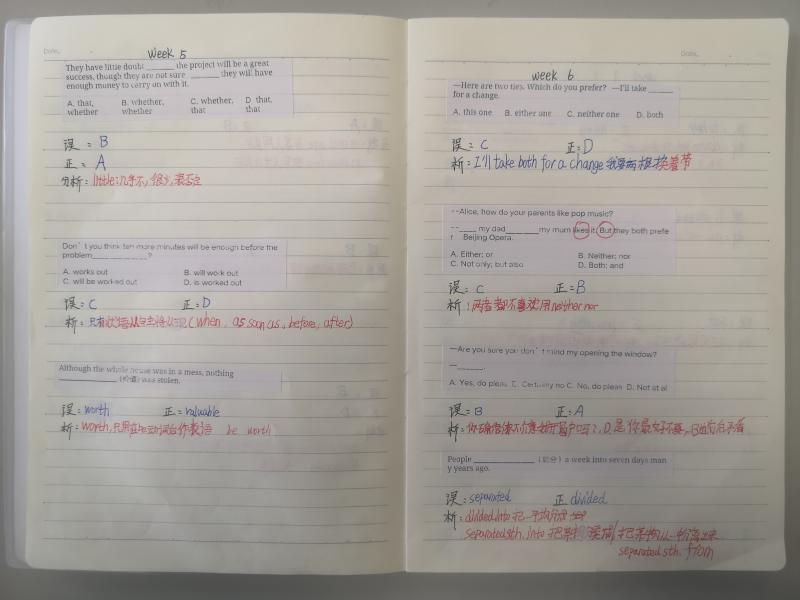 Date.
Week 5
They have little doubt ______ the project will be a great
success, though they are not sure ______ they will have
enough money to carry on with it.
A. that, whether B. whether, whether C. whether, that D. that, that
误 = B
正 = A
分析: little:几乎不, 很少, 表否定
Don't you think ten more minutes will be enough before the
problem____________?
A. works out B. will work out
C. will be worked out D. is worked out
误=C 正=D
析: (when, as soon as, before, after)
Although the whole house was in a mess, nothing
____________ (价值) was stolen.
误: worth 正=valuable
析: worth, 作表语 be worth
Date.
week 6
—Here are two ties. Which do you prefer? —I'll take ______
for a change.
A. this one B. either one C. neither one D. both
误=C 正=D
析: I'll take both for a change 换着带
--Alice, how do your parents like pop music?
--_____ my dad________my mum likes it. But they both prefe
r Beijing Opera.
A. Either; or B. Neither; nor
C. Not only; but also D. Both; and
误=C 正=B
析: 两者都不喜欢用neither nor
—Are you sure you don't mind my opening the window?
—______.
A. Yes, do pleas C. No, do pleas D. Not at al
误=B 正=A
析: D是
People ____________ (划分) a week into seven days man
y years ago.
误: separated 正 divided
析: divided into 把一
separated sth. into 把某物
separated sth. from